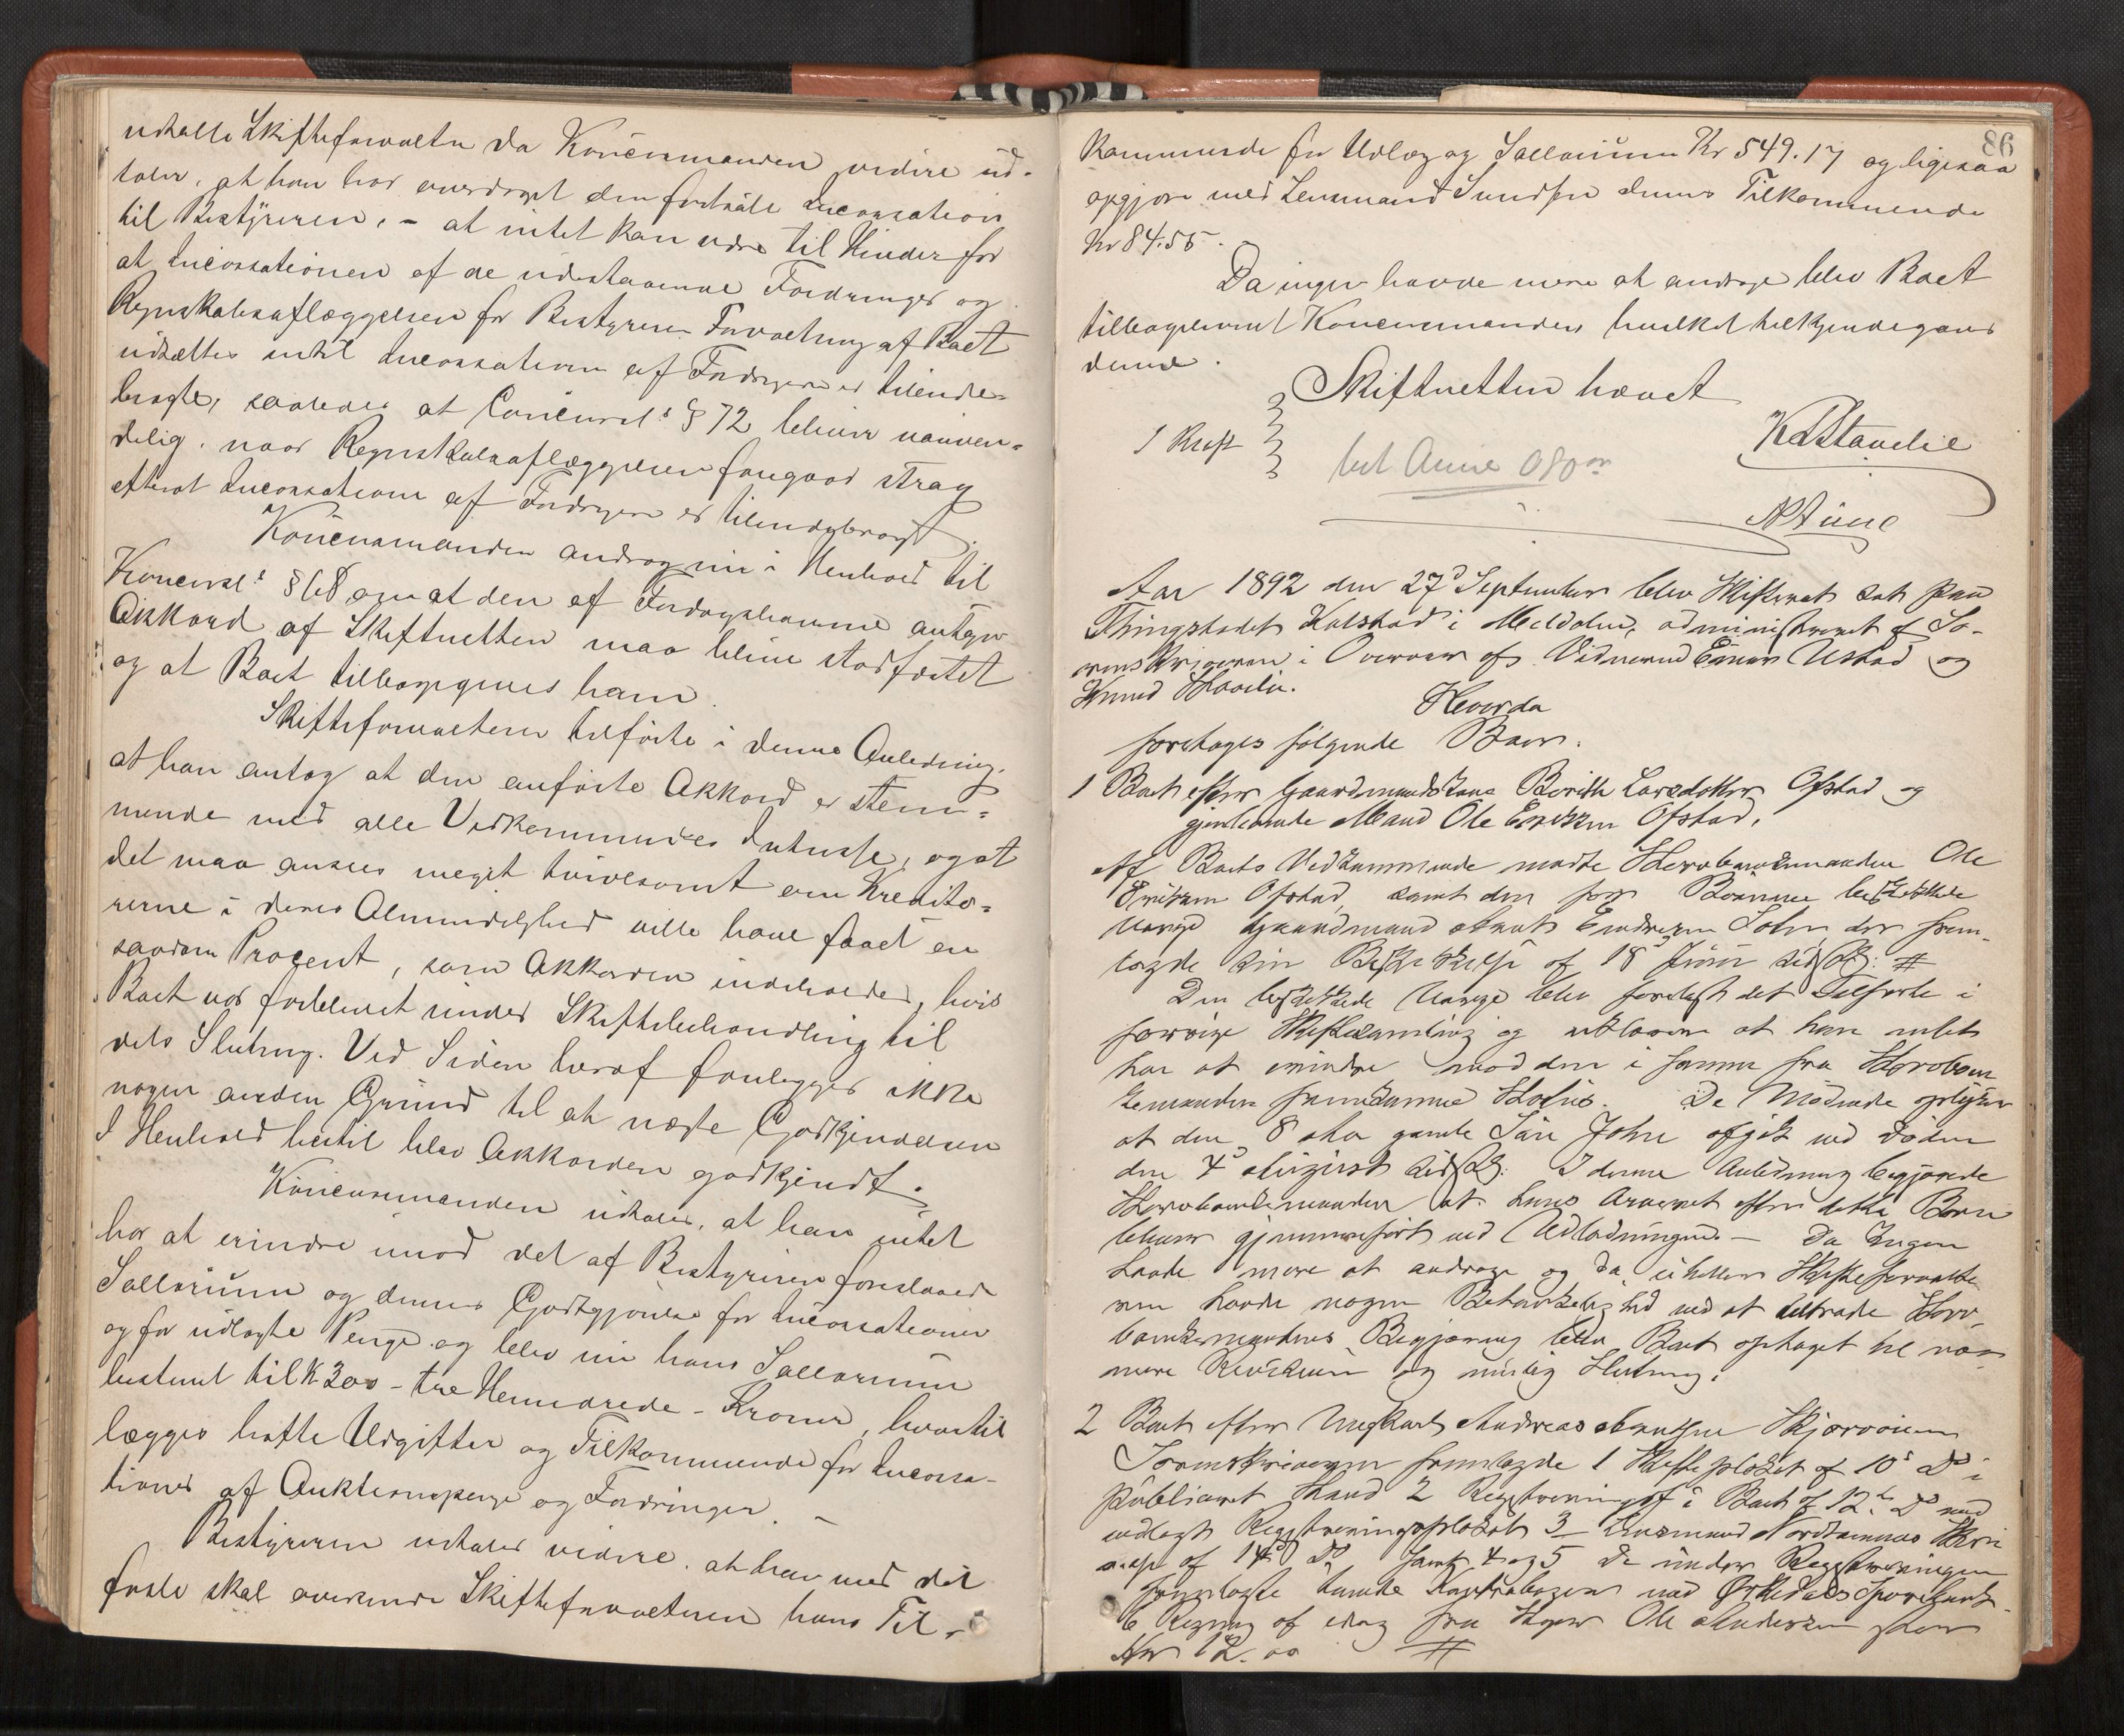 udtalte Skifteforvalteren da Koncursmanden videre ud-
taler, at han har overdraget den fortsatte Incassation
til Bestyreren, - at intet kan være til Hinder for
at Incassationen af de udestaaende Fordringer og
Regnskabsaflæggelsen for Bestyrerens Forvaltning af Boet
udsættes indtil Incassationen af Fordringerne er tilende-
bragte, saaledes at Concursl's § 72 bliver uanven-
delig, naar Regnskabsaflæggelsen foregaar strax
efterat Incassationen af Fordringerne er tilendebragt.
Koncursmanden androg nu i Henhold til
Koncursl's § 68 om at den af Fordringshaverne antagne
Akkord af Skifteretten maa blive stadfæstet
og at Boet tilbagegives ham.
Skifteforvalteren tilførte i denne Anledning,
at han antog at den anførte Akkord er stem-
mende med alle Vedkommendes Interesse, og at
det maa ansees meget tvivlsomt om Kredito-
rerne i deres Almindelighed ville have faaet en
saadan Procent, som Akkorden indeholder, hvis
Boet var forblevet under Skiftebehandling til
dets Slutning. Ved Siden heraf foreligger ikke
nogen anden Grund til at nægte Godkjendelsen
I Henhold hertil blev Akkorden godkjendt.
Koncursmanden udtaler, at han intet
har at erindre imod det af Bestyreren foreslaaede
Sallarium og dennes Godtgjørelse for Incassationen
og for udlagte Penge og blev nu hans Sallarium
bestemt til Kr 300 - tre Hundrede - Kroner, hvortil
lægges havte Udgifter og Tilkommende for Incassa-
tionen af Auktionspenge og Fordringer. -
Bestyreren udtaler videre, at han med det
første skal oversende Skifteforvalteren hans Til-
86
kommende for Udlæg og Sallarium Kr 549.17 og ligesaa
opgjøre med Lensmand Sund for dennes Tilkommende
Kr 84.55.
Da ingen havde mere at andrage blev Boet
tilbageleveret Koncursmanden hvilket tilkjendegaves
denne.
Skifteretten hævet
1 Kraft
bet Aune 080
KStavelie
NAune
Aar 1892 den 27d September blev Skifteret sat paa
Thingstedet Kalstad i Meldalen, administreret af So-
renskriveren i Overvær af Vidnerne Einar Ustad og
Knud Skoelie.
Hvorda
foretoges følgende Boer:
1 Boet efter Gaardmandskone Berith Larsdatter Ofstad og
gjenlevende Mand Ole Eriksen Ofstad.
Af Boets Vedkommende mødte Stervboenkemanden Ole
Eriksen Ofstad, samt den for Børnene beskikkede
Værge Gaardmand Arnt Endresen Solem, der frem-
lagde sin Beskikkelse af 18d Juni sidstl. #
Den beskikkede Værge blev forelæst det Tilførte i
forrige Skiftesamling og erklærede at han intet
har at erindre mod den i samme fra Stervboen-
kemanden fremkomne Status. De Mødende oplyser
at den 8 Aar gamle Søn John afgik ved Døden
den 4d August sidstl. I denne Anledning begjærede
Stervboenkemanden at hans Arveret efter dette Barn
bliver gjennemført ved Udlodningen. - Da Ingen
havde mere at andrage og da ei heller Skifteforvalte-
ren havde nogen Betænkelighed ved at tiltræde Sterv-
boenkemandens Begjæring blev Boet optaget til nær-
mere Revision og mulig Slutning.
2 Boet efter Ungkarl Andreas Arntsen Skjærvøien
Sorenskriveren fremlagde 1 Skifteplakat af 10d Ds i
publiceret Stand 2 Registreringsf. i Boet af 12te Ds med
indlagt Registreringsplakat 3 - Lensmand Nordtømmes Skri-
velse af 14d Ds samt 4 og 5 De under Registreringen
forelagte tvende Kontrabøger med Ørkedals Sparebank
6 Regning af idag fra Ole Andersen stor
Kr 12.00 #